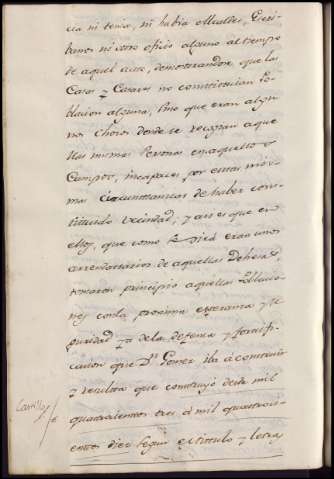 cia ni tenia, ni habia Alcaldes, Escri-
banos ni otro oficio alguno al tiempo
de aquel acto, demostrandose que las
Casas y Cesares no constituian Po-
blacion alguna, sino que eran algu-
nos chozos donde se recogian aque
llas mismas Personas en aquellos
Campos, incapaces por estas mis-
mas circunstancias de haber cons-
tituido vecindad, y asi es que en
ellos, que como se dirá eran unos
arrendatarios de aquellas Dehesas,
tomaron principio aquellas Poblacio-
nes con la proxima esperanza y se
guridad ya de la defensa y fortifi-
cacion que Dn Gomez iba á construir
y resulta que construyó desde mil
Castillo
quatrocientos tres á mil quatroci-
entos diez segun el titulo y letras